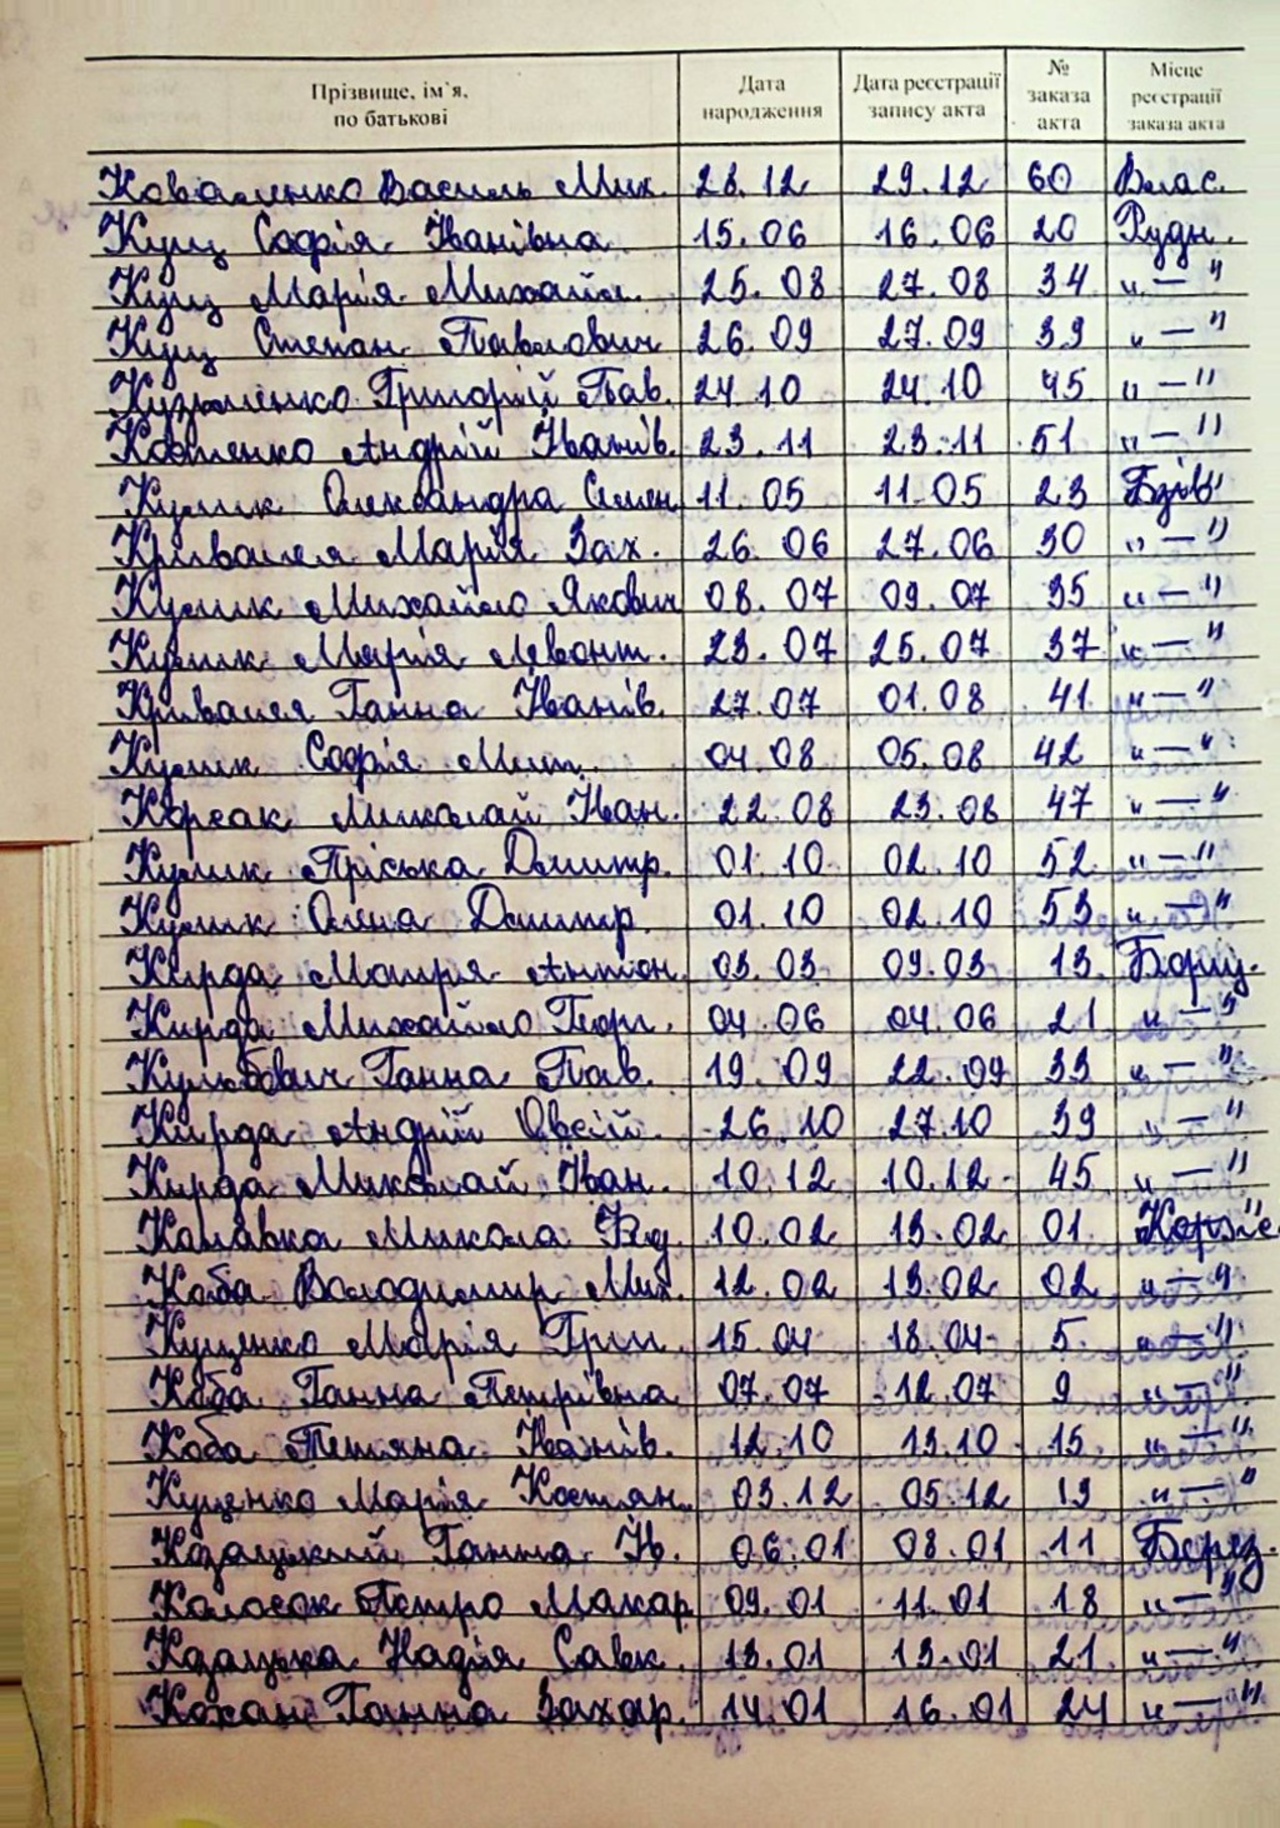 Прізвище, ім`я, по батькові Дата народження Дата реєстрації запису акта № заказа акта Місце реєстрації заказа акта
Коваленко Василь Мих. 28.12 29.12 60 Влас.
Кущ Софія Іванівна 15.06 16.06 20 Рудн.
Кущ Марія Михайл. 25.08 27.08 34 "—"
Кущ Степан Павлович 26.09 27.09 39 "—"
Кузьменко Григорій Пав. 24.10 24.10 45 "—"
Костенко Андрій Іванів. 23.11 23.11 51 "—"
Кулик Олександра Семен 11.05 11.05 23 Бзів
Кривалея Марія Зах. 26.06 27.06 30 "—"
Кулик Михайло Якович 08.07 09.07 35 "—"
Кулик Марія Левонт. 23.07 25.07 37 "—"
Кривалея Ганна Іванів. 27.07 01.08 41 "—"
Кулик Софія Мит. 04.08 05.08 42 "—"
Корсак Миколай Іван. 22.08 23.08 47 "—"
Кулик Пріська Дмитр. 01.10 02.10 52 "—"
Кулик Олена Дмитр. 01.10 02.10 53 "—"
Кирда Мотря Антон. 03.03 09.03 13 Борщ.
Кирда Михайло Георг. 04.06 04.06 21 "—"
Кульбович Ганна Пав. 19.09 22.09 33 "—"
Кирда Андрій Овсій. 26.10 27.10 39 "—"
Кирда Миколай Іван. 10.12 10.12 45 "—"
Калавка Микола 10.02 13.02 01
Коба Володимир Мих. 12.02 13.02 02 "—"
Куценко Марія Григ. 15.04 18.04 5 "—"
Коба Ганна Петрівна 07.07 12.07 9 "—"
Коба Тетяна Іванів. 12.10 13.10 15 "—"
Куценко Марія Костян. 03.12 05.12 19 "—"
Козацький Ганна Ів. 06.01 08.01 11 Берез.
Колосок Петро Макар. 09.01 11.01 18 "—"
Козацька Надія Савк. 13.01 13.01 21 "—"
Кохан Ганна Захар. 14.01 16.01 24 "—"